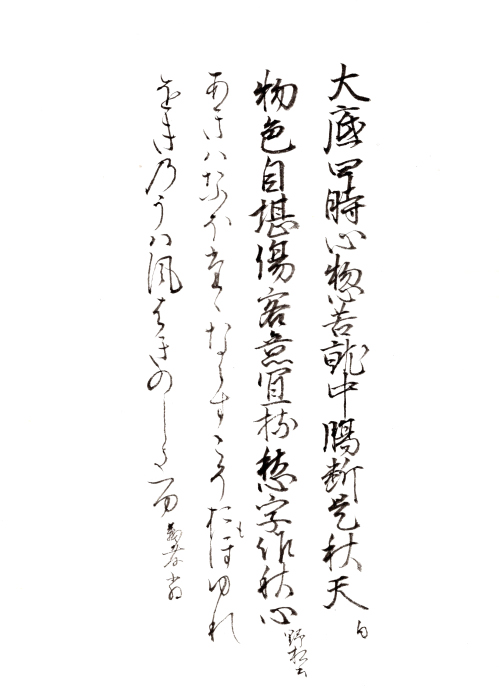 大底四時心惣苦就中腸断是秋天 白
物色自堪傷客意宜将愁字作秋心 野相公
あきハなほたゝならすこそおもほゆれ
をき乃うハ風はきのしたつゆ 義孝少将